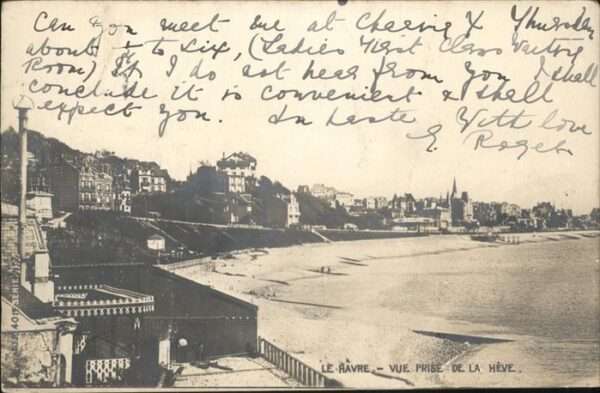 Can you meet me at Charing X Thursday
about ¼ to Six, (Ladies First Class Waiting
Room) If I do not hear from you I shall
conclude it is convenient & shall
expect you. In haste With love
Roger
LE HAVRE. - VUE PRISE DE LA HÈVE.